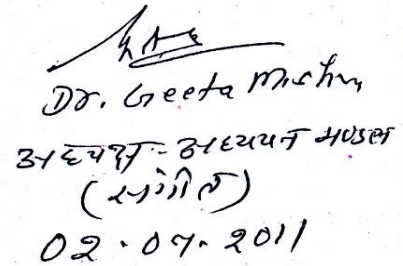 Dr. Geeta Mishra
अध्यक्ष - अध्ययन मण्डल
(संगीत)
02.07.2011